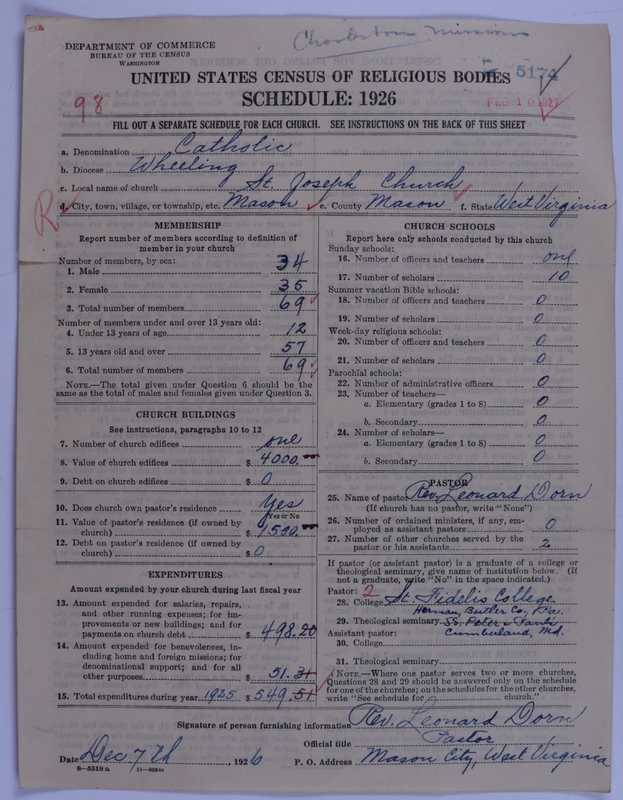 DEPARTMENT OF COMMERCE
BUREAU OF THE CENSUS
WASHINGTON
UNITED STATES CENSUS OF RELIGIOUS BODIES
5174
SCHEDULE: 1926
98
FILL OUT A SEPARATE SCHEDULE FOR EACH CHURCH. SEE INSTRUCTIONS ON THE BACK OF THIS SHEET
a. Denomination Catholic
b. Diocese Wheeling
c. Local name of church St. Joseph Church
R
d. City, town, village, or township, etc. Mason e. County Mason f. State West Virginia
MEMBERSHIP
Report number of members according to definition of
member in your church
Number of members, by sex:
1. Male 34
2. Female 35
3. Total number of members 69
Number of members under and over 13 years old:
4. Under 13 years of age 12
5. 13 years old and over 57
6. Total number of members 69
NOTE.—The total given under Question 6 should be the
same as the total of males and females given under Question 3.
CHURCH BUILDINGS
See instructions, paragraphs 10 to 12
7. Number of church edifices one
8. Value of church edifices $ 4000.
9. Debt on church edifices $ 0
10. Does church own pastor's residence Yes
Yes or No
11. Value of pastor's residence (if owned by
church) $ 1500.
12. Debt on pastor's residence (if owned by
church) $ 0
EXPENDITURES
Amount expended by your church during last fiscal year
13. Amount expended for salaries, repairs,
and other running expenses; for im-
provements or new buildings; and for
payments on church debt $ 498.20
14. Amount expended for benevolences, in-
cluding home and foreign missions; for
denominational support; and for all
other purposes 51.31
15. Total expenditures during year 1925 $ 549.51
CHURCH SCHOOLS
Report here only schools conducted by this church
Sunday schools:
16. Number of officers and teachers one
17. Number of scholars 10
Summer vacation Bible schools:
18. Number of officers and teachers 0
19. Number of scholars 0
Week-day religious schools:
20. Number of officers and teachers 0
21. Number of scholars 0
Parochial schools:
22. Number of administrative officers 0
23. Number of teachers—
a. Elementary (grades 1 to 8) 0
b. Secondary 0
24. Number of scholars—
a. Elementary (grades 1 to 8) 0
b. Secondary 0
PASTOR
25. Name of pastor Rev. Leonard Dorn
(If church has no pastor, write "None")
26. Number of ordained ministers, if any, em-
ployed as assistant pastors 0
27. Number of other churches served by the
pastor or his assistants 2
If pastor (or assistant pastor) is a graduate of a college or
theological seminary, give name of institution below. (If
not a graduate, write "No" in the space indicated.)
Pastor: 2
28. College St. Fidelis College
Herman, Butler Co., Pa.
29. Theological seminary SS. Peter & Paul's
Assistant pastor: Cumberland, Md.
30. College
31. Theological seminary
(NOTE.—Where one pastor serves two or more churches,
Questions 28 and 29 should be answered only on the schedule
for one of the churches; on the schedules for the other churches,
write "See schedule for church.")
Signature of person furnishing information Rev. Leonard Dorn
Official title Pastor
Date Dec 7th, 1926 P. O. Address Mason City, West Virginia
8—5518a